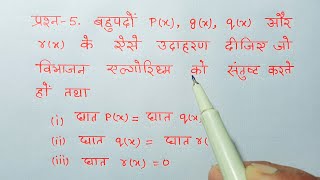 प्रश्न-5. बहुपदों P(x), g(x), q(x) और
r(x) के ऐसे उदाहरण दीजिए जो
विभाजन एल्गोरिथ्म को संतुष्ट करते
हों तथा
(i) घात P(x) = घात q(
(ii) घात q(x) = घात r(
(iii) घात r(x) = 0